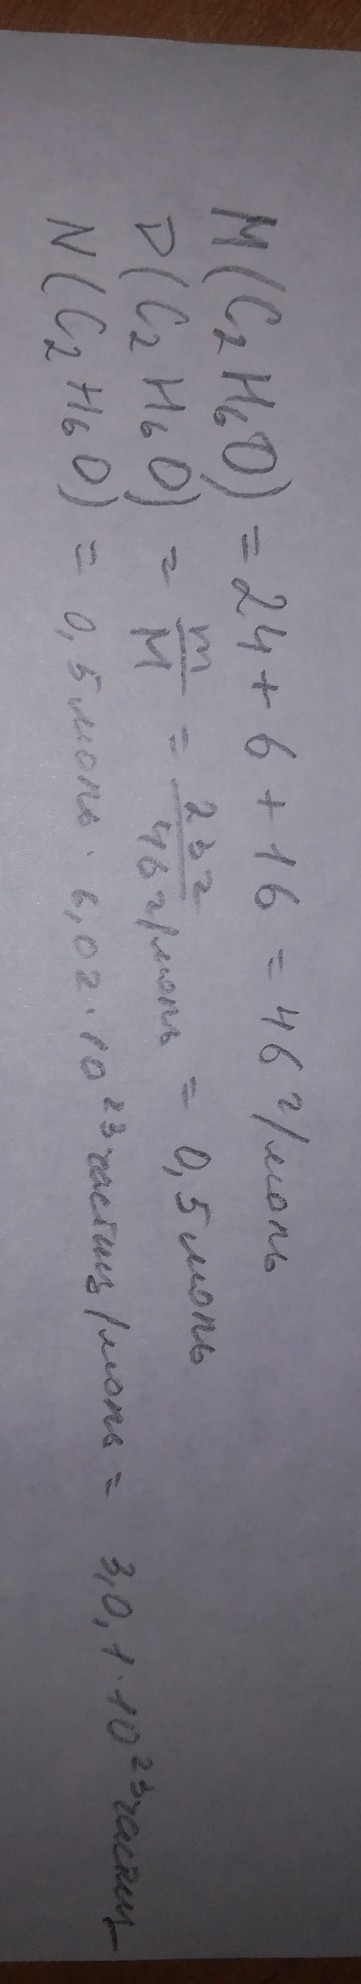 M(C₂H₆O) = 24 + 6 + 16 = 46 г/моль
ν(C₂H₆O) = m/M = 23г/46г/моль = 0,5 моль
N(C₂H₆O) = 0,5 моль · 6,02 · 10²³ частиц/моль = 3,0,1 · 10²³ частиц